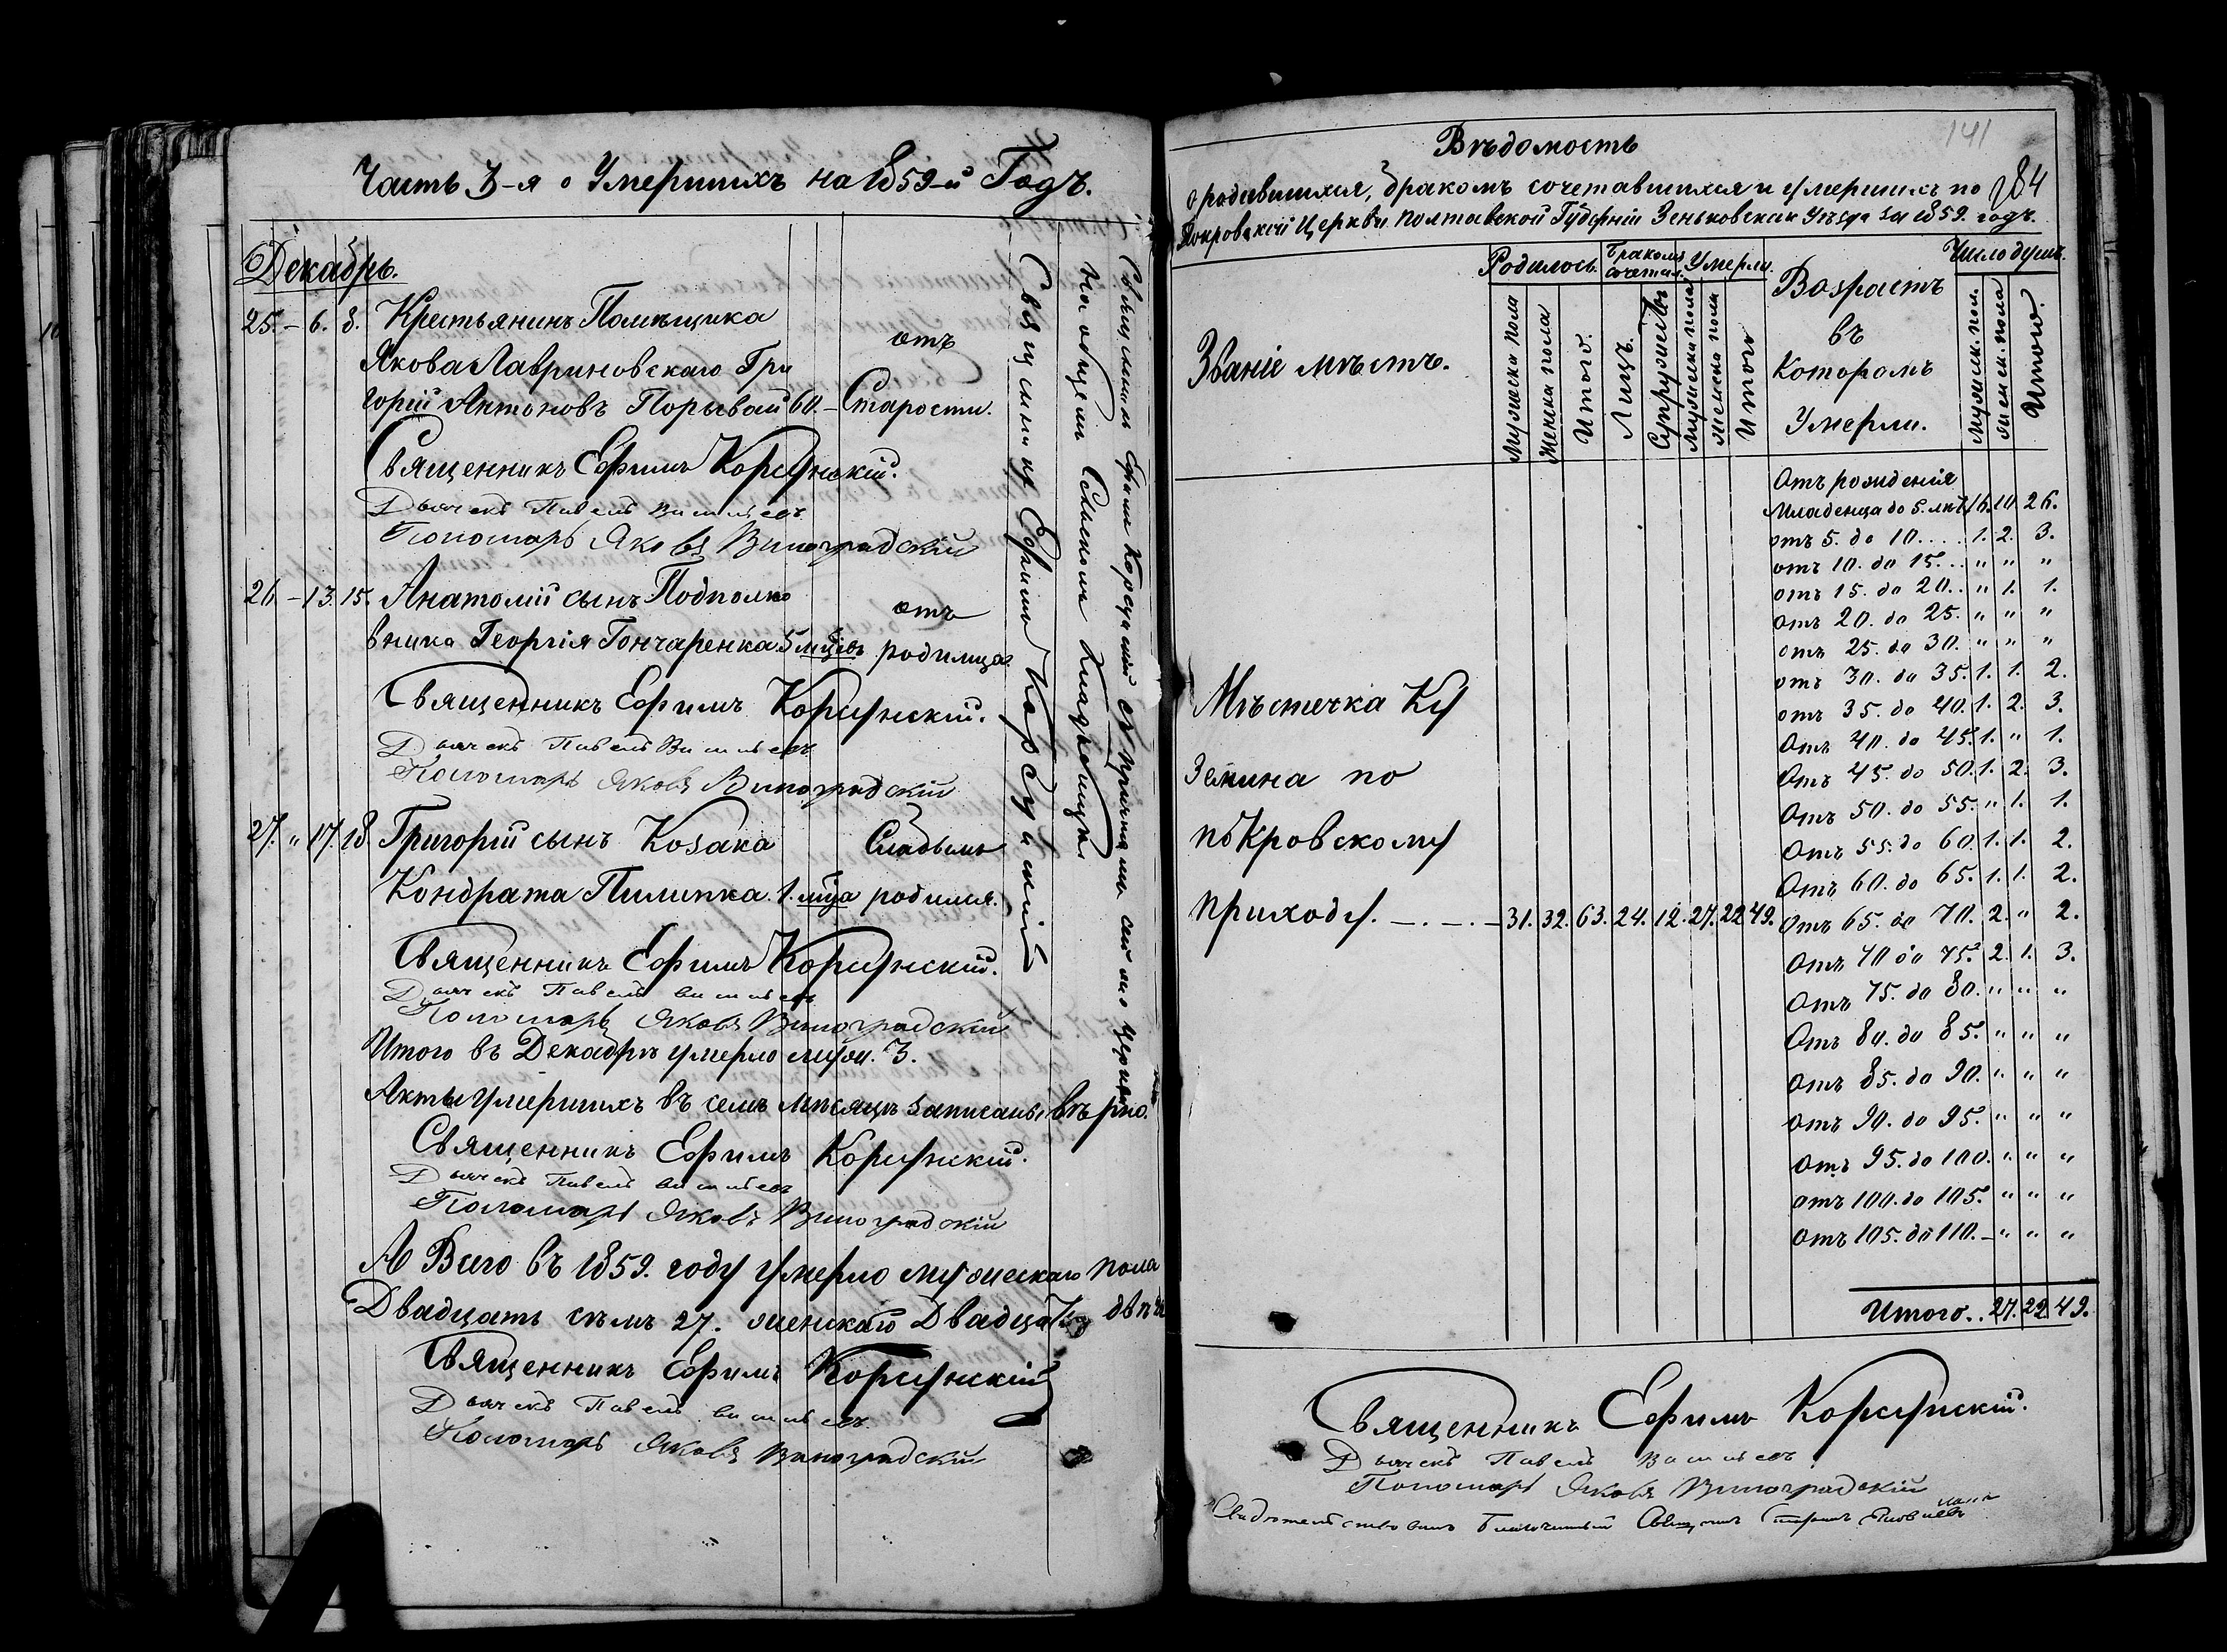 Часть 3-я о Умершихъ на 1859-й Годъ.
Декабрь.
25. – 6. 8. Крестьянинъ Помѣщика
Якова Лавриновскаго Гри
горій Антоновъ Порывай 60. – отъ Старости.
Священникъ Ефимъ Корсунскій.
Дьячекъ Павелъ
Пономарь Яковъ Виноградскій
26. – 13. 15. Анатолій сынъ Подполко
вника Георгія Гончаренка 5 мцѣвъ отъ родимца
Священникъ Ефимъ Корсунскій.
Дьячекъ Павелъ
Пономарь Яковъ Виноградскій
27. " 17. 18. Григорій сынъ Козака
Кондрата Пилипка. 1. мца Слабымъ родился.
Священникъ Ефимъ Корсунскій.
Дьячекъ Павелъ
Пономарь Яковъ Виноградскій
Итого въ Декабрѣ умерло муж. 3.
Акты умершихъ въ семъ мѣсяцѣ записаны вѣрно.
Священникъ Ефимъ Корсунскій.
Дьячекъ Павелъ
Пономарь Яковъ Виноградскій
А Всего въ 1859. году умерло мужескаго пола
Двадцать семъ 27. женскаго Двадцать двѣ
Священникъ Ефимъ Корсунскій
Дьячекъ Павелъ
Пономарь Яковъ Виноградскій
На общемъ Сельскомъ Кладбищѣ
Священникъ Ефимъ Корсунскій
Священникъ Ефимъ Корсунскій съ причтомъ
141
284
Вѣдомость
о родившихся, бракомъ сочетавшихся и умершихъ по
Покровской Церкви Полтавской Губерніи Зеньковскаго Уѣзда за 1859. годъ.
Званіе мѣстъ.
Родилось.
Мужеска пола
Женска пола
Итого.
Бракомъ сочетал.
Лицъ.
Супружествъ
Умерли.
Мужеска пола
Женска пола
Итого
Возрастъ
въ
Которомъ
Умерли.
Число душъ.
Мужск. пол.
Женск. пола
Итого.
Мѣстечка Ку
земина по
покровскому
приходу. 31. 32. 63. 24. 12. 27. 22 49.
Отъ рожденія
Младенца до 5. лѣтъ 16. 10 26.
отъ 5. до 10. . . . 1. 2. 3.
отъ 10. до 15. . . " " "
отъ 15. до 20. . " 1. 1.
отъ 20. до 25. " " "
отъ 25. до 30. " " "
отъ 30. до 35. 1. 1. 2.
отъ 35. до 40. 1. 2. 3.
Отъ 40. до 45. 1. " 1.
Отъ 45. до 50. 1. 2. 3.
Отъ 50. до 55. " 1. 1.
Отъ 55. до 60. 1. 1. 2.
Отъ 60. до 65. 1. 1. 2.
Отъ 65. до 70. 2. " 2.
Отъ 70 до 75. 2. 1. 3.
Отъ 75. до 80. " " "
Отъ 80. до 85. " " "
Отъ 85. до 90. " " "
отъ 90. до 95. " " "
Отъ 95. до 100. " " "
отъ 100. до 105. " " "
отъ 105. до 110. – " " "
Итого. . 27. 22 49.
Священникъ Ефимъ Корсунскій.
Дьячекъ Павелъ
Пономарь Яковъ Виноградскій
Свидѣтельствовалъ Благочинный